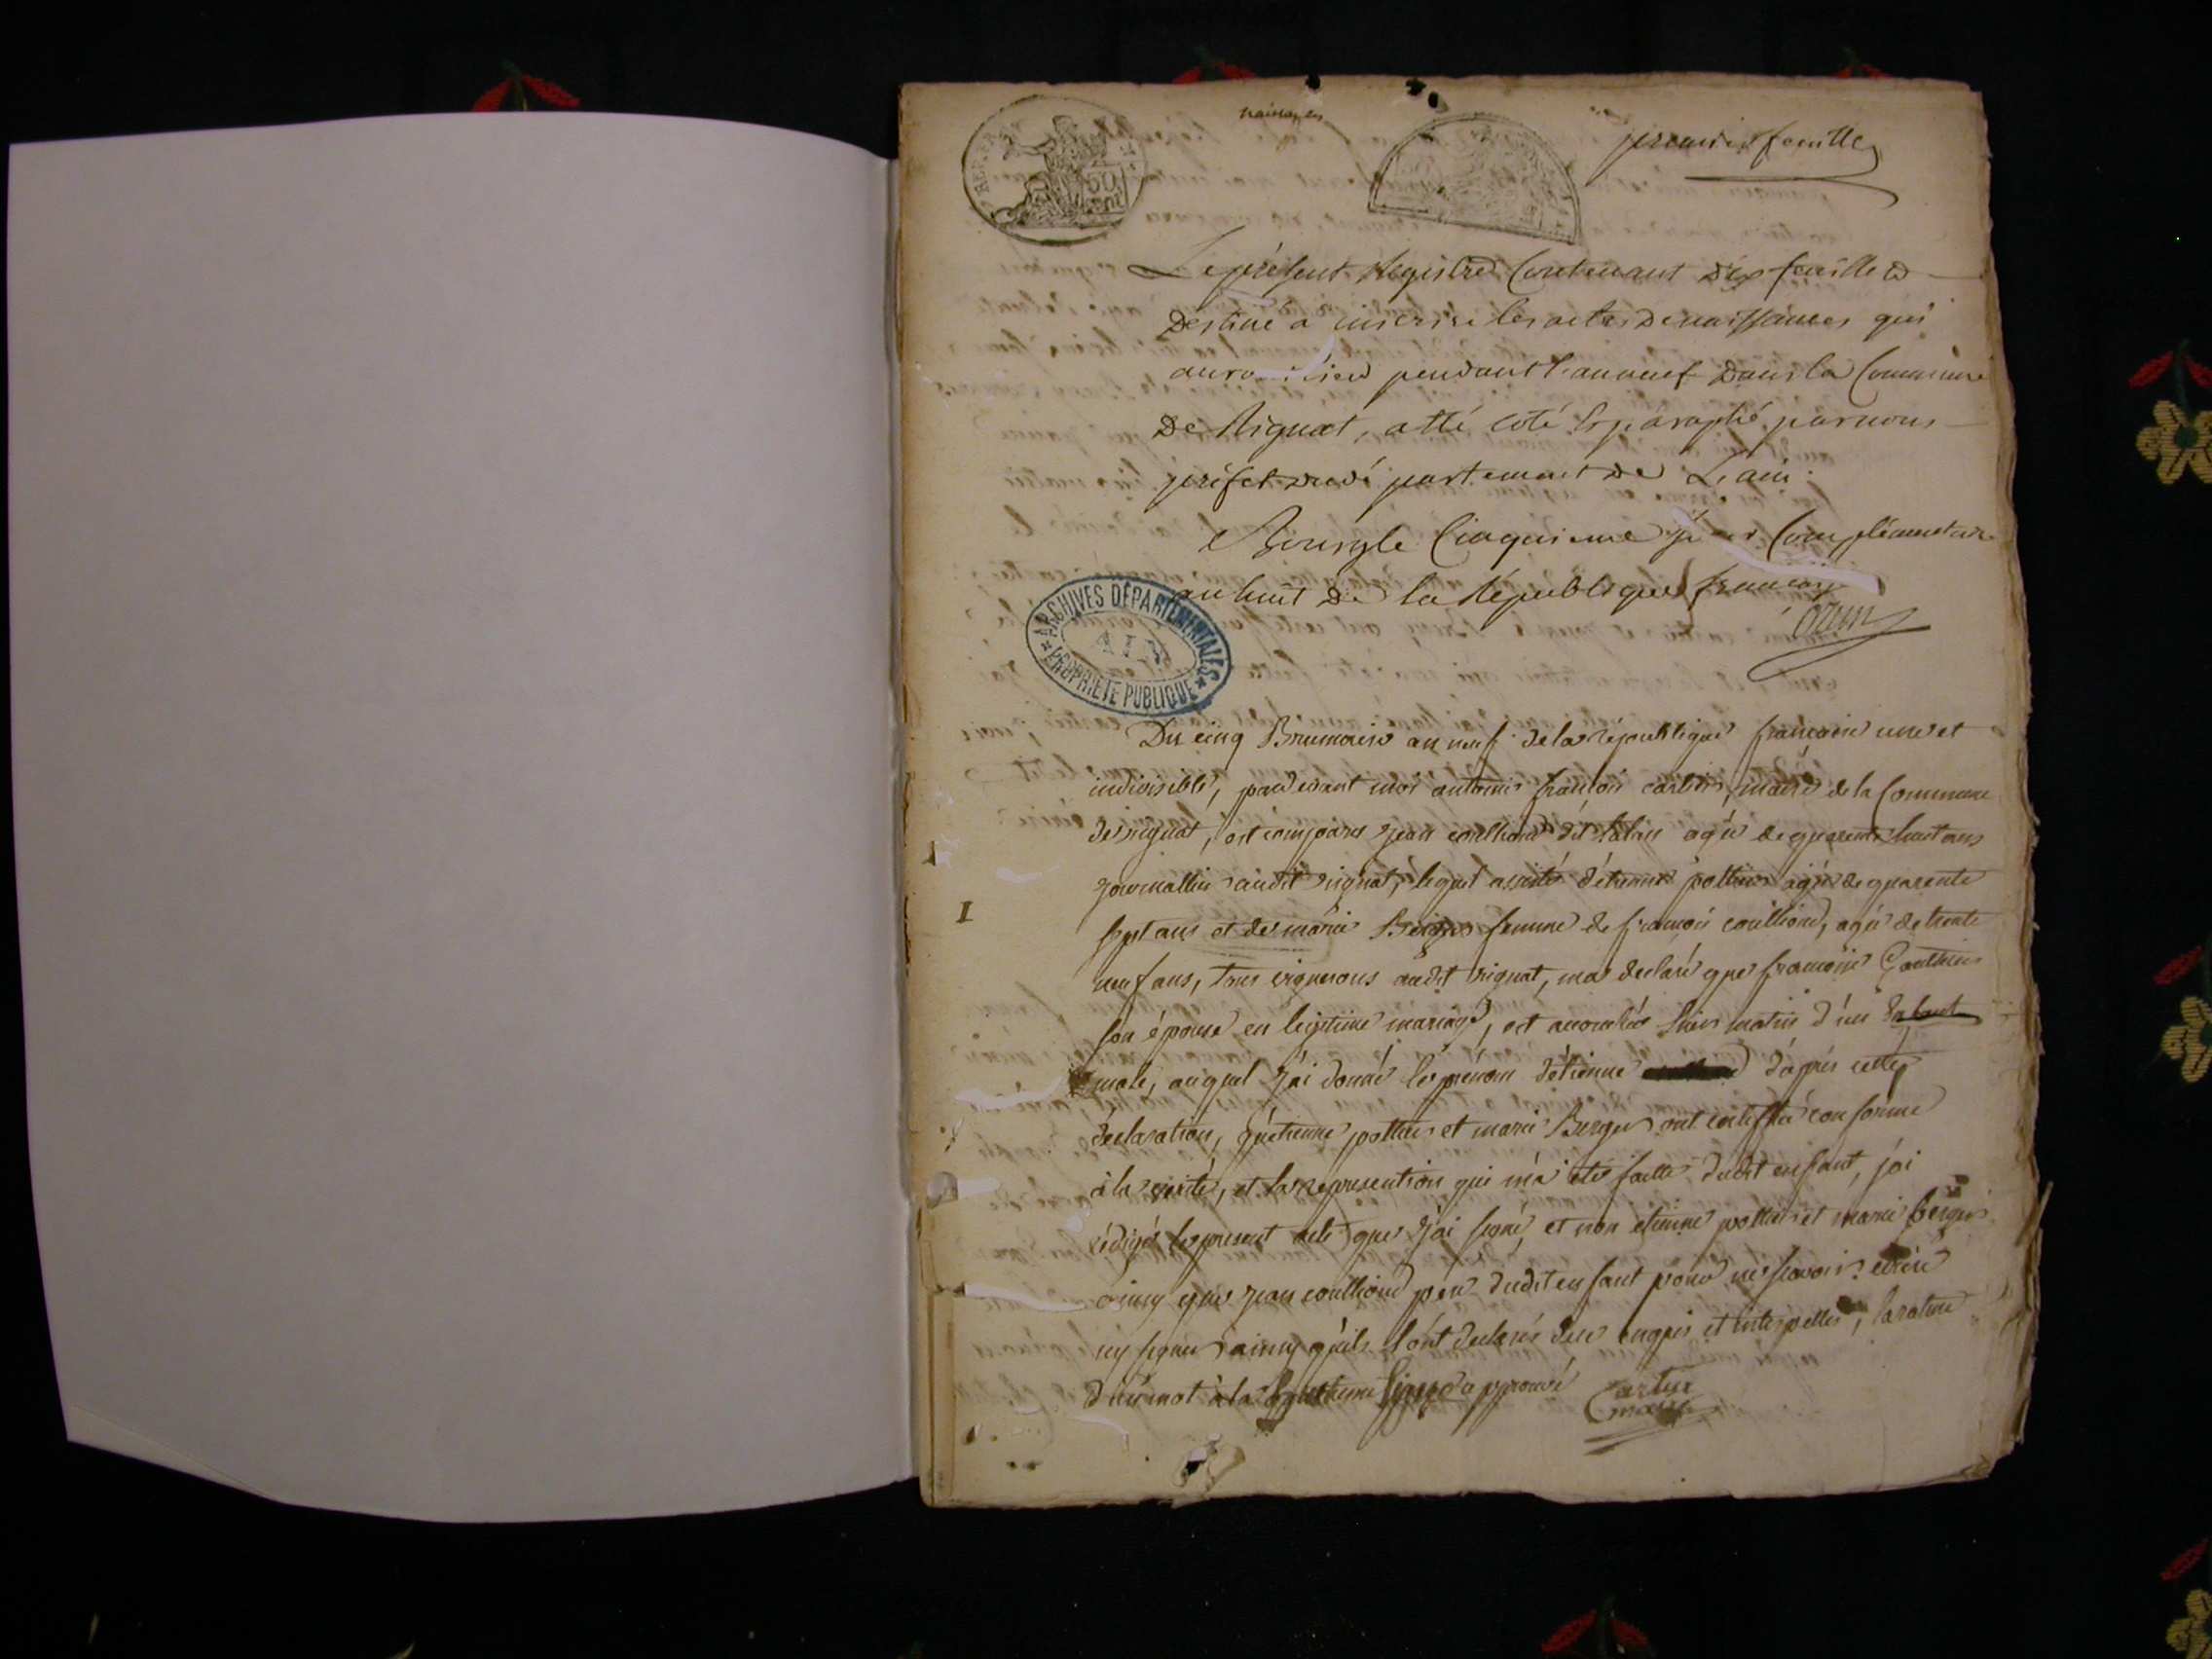 naissances
premier feuille
REP. FRA
50
cent
Le présent Registre Contenant dix feuilles
Destiné a inscrire les actes de naissances qui
auront lieu pendant l'an neuf dans la Commune
De Rignat, a été coté & paraphé par nous
préfet du département de L'ain.
Bourg le Cinquieme jour Complémentaire
an huit de la République française
Ozun
ARCHIVES DÉPARTEMENTALES
AIN
PROPRIÉTÉ PUBLIQUE
Du cinq Brumaire an neuf de la république francoise une et
indivisible, par devant moi antoine françois cartier, maire de la Commune
de rignat, est comparu jean couilliond dit agé de quarente huit ans
journallier audit rignat, lequel assisté d'étienne pottier agé de quarente
I
sept ans et de marie Berger femme de françois couilliond, agée de trente
neuf ans, tous vignerons audit rignat, m'a declaré que françoise Gauthier
son épouse en legitime mariage, est accouchée hier matin d'un Enfant
male, auquel j'ai donné le prénom d'étienne d'aprés cette
déclaration, qu'étienne pottier et marie Berger ont certiffié conforme
à la vérité, et la représention qui m'a été faitte dudit enfant, j'ai
rédigé le present acte que j'ai signé, et non etienne pottier et marie berger
ainsy que jean couilliond pere dudit enfant pour ne scavoir écrire
ny signer ainsy qu'ils l'ont declarés de ce enquis et interpellés, la rature
d'un mot à la ligne approuvé
Cartier
maire